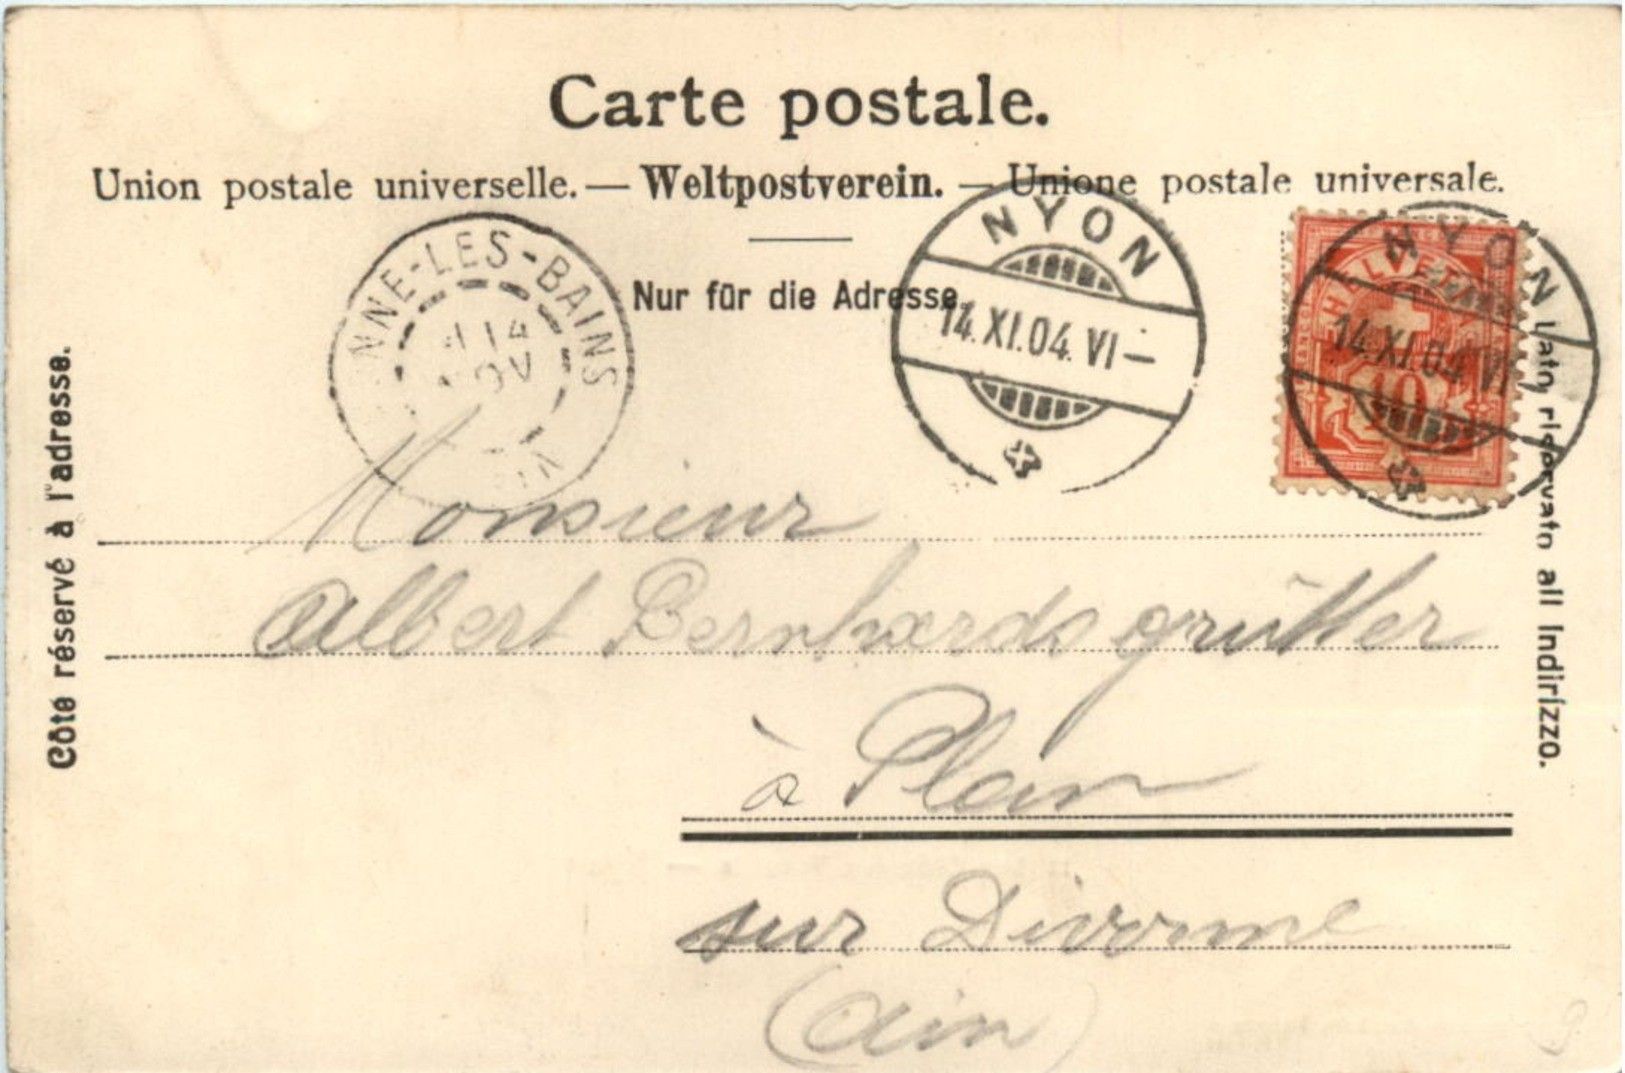 Carte postale.
Union postale universelle. — Weltpostverein. — Unione postale universale.
Nur für die Adresse.
Côté réservé à l'adresse.
Lato riservato all Indirizzo.
NNE-LES-BAINS
14
NYON
14.XI.04. VI—
NYON
14.XI.04 VI
HELVETIA
FRANCO
10
Monsieur
Albert Bernhardsgrütter
à Plan
sur Divonne
(Ain)